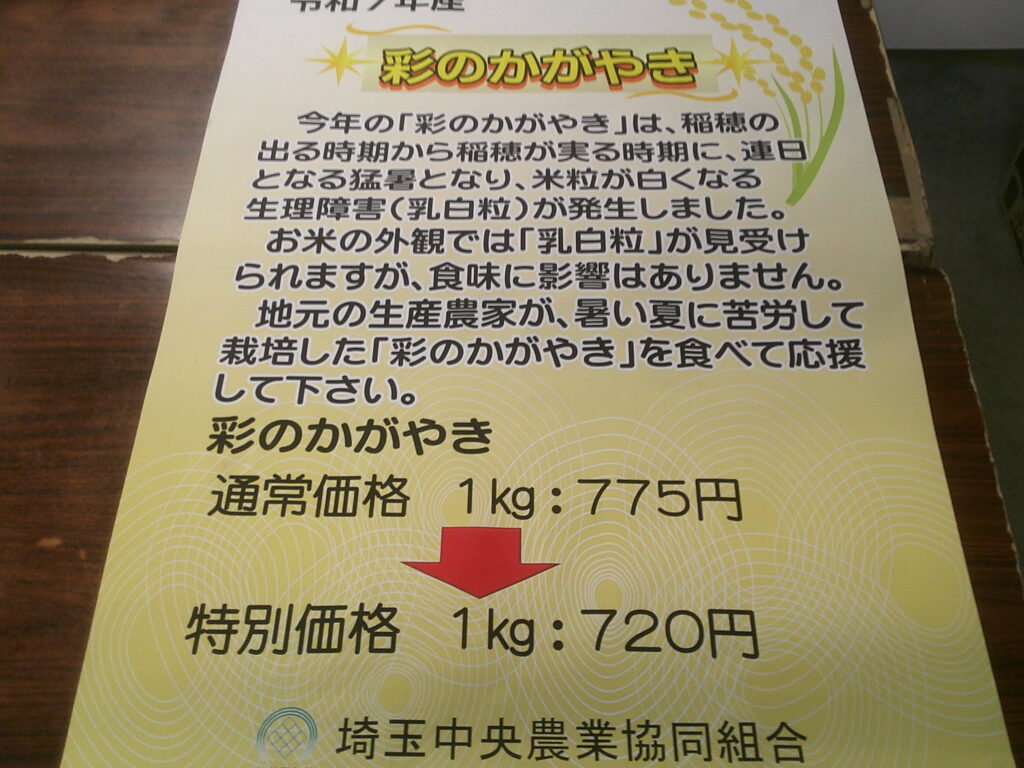 令和7年産
彩のかがやき
今年の「彩のかがやき」は、稲穂の
出る時期から稲穂が実る時期に、連日
となる猛暑となり、米粒が白くなる
生理障害(乳白粒)が発生しました。
お米の外観では「乳白粒」が見受け
られますが、食味に影響はありません。
地元の生産農家が、暑い夏に苦労して
栽培した「彩のかがやき」を食べて応援
して下さい。
彩のかがやき
通常価格 1kg:775円
特別価格 1kg:720円
埼玉中央農業協同組合